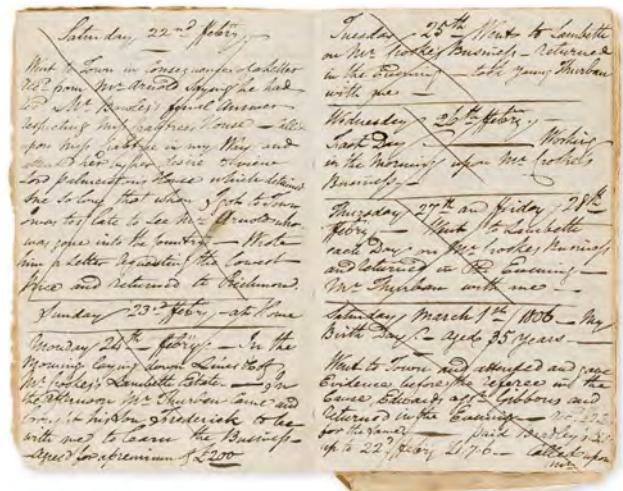 Saturday 22nd Febry
Went to Town in Consequence of a letter
recd from Mr Arnold saying he had
Mr Bowles's final Answer
respecting Miss House — Called
upon Miss in my Way and
her desire
Lord Palmerston's House which detained
me so long that when I got to Town
was too late to See Mr Arnold who
was gone into the Country — Wrote
him a Letter requesting the lowest
Price and returned to Richmond.
Sunday 23d Febry — at Home
Monday 24th Febry — In the
Morning laying down Lines &c of
Mr Crokes's Lambeth Estate. — In
the afternoon Mr Thurban Came and
his Son Frederick to be
with me to learn the Business —
Agreed for a premium of £200
Tuesday 25th Went to Lambeth
on Mr Crokes Business — returned
in the Evening — took young Thurban
with me —
Wednesday 26th Febry —
Fast Day — Working
in the Morning upon Mr Crokes
Business —
Thursday 27th and friday 28th
Febry — Went to Lambeth
each Day on Mr Crokes Business
and returned in the Evening —
Mr Thurban with me —
Saturday March 1st 1806 — My
Birth Day — aged 35 years —
Went to Town and attended and gave
Evidence before the referee in the
Cause Edwards agst Gibbons and
returned in the Evening —
for the same — paid Bradley's
up to 22d Febry — Called upon